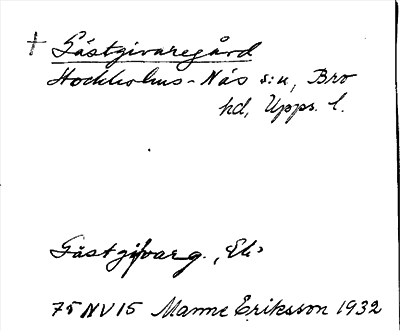 † Gästgivaregård
Stockholms-Näs s:n, Bro
hd, Upps. l.
Gästgifvarg., Ek
75 NV 15 Manne Eriksson 1932